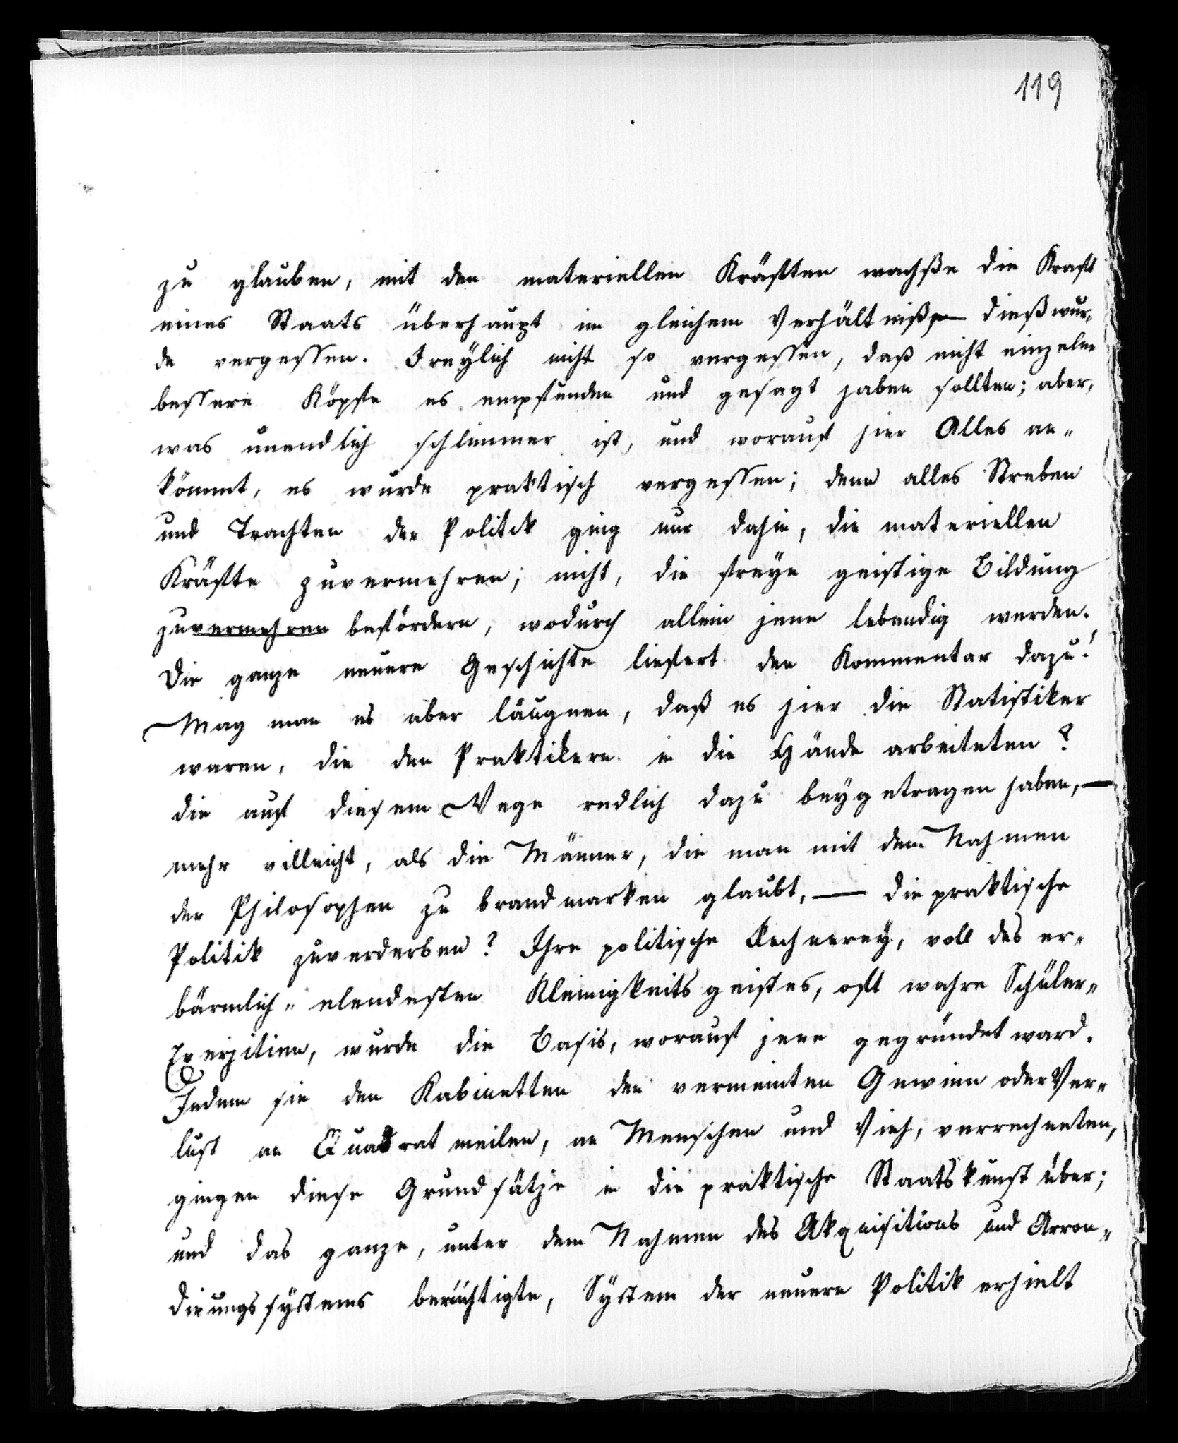 119
zu glauben, mit den materiellen Kräften wachße die Kraft
eines Staats überhaupt im gleichem Verhältniße — dieß wur-
de vergessen. Freylich nicht so vergessen, daß nicht einzelne
bessere Köpfe es empfunden und gesagt haben sollten; aber,
was unendlich schlimmer ist, und worauf hier Alles an-
kömmt, es wurde praktisch vergessen; denn alles Streben
und Trachten der Politik ging nur dahin, die materiellen
Kräfte zuvermehren; nicht, die freye geistige Bildung
zuvermehren befördern, wodurch allein jene lebendig werden.
Die ganze neuere Geschichte liefert den Kommentar dazu!
Mag man es aber läugnen, daß es hier die Statistiker
waren, die den Praktikern in die Hände arbeiteten?
die auf diesem Wege redlich dazu beygetragen haben, —
mehr villeicht, als die Männer, die man mit dem Nahmen
der Philosophen zu brandmarken glaubt, — die praktische
Politik zuverderben? Ihre politische Rechnerey, voll des er-
bärmlich-elendesten Kleinigkeitsgeistes, oft wahre Schüler-
Exerzitien, wurde die Basis, worauf jene gegründet ward.
Indem sie den Kabinetten den vermeinten Gewinn oder Ver-
lust an Quadratmeilen, an Menschen und Vieh, verrechneten,
gingen diese Grundsätze in die praktische Staatskunst über;
und das ganze, unter dem Nahmen des Akquisitions und Arron-
dirungssystems berüchtigte, System der neuern Politik erhielt